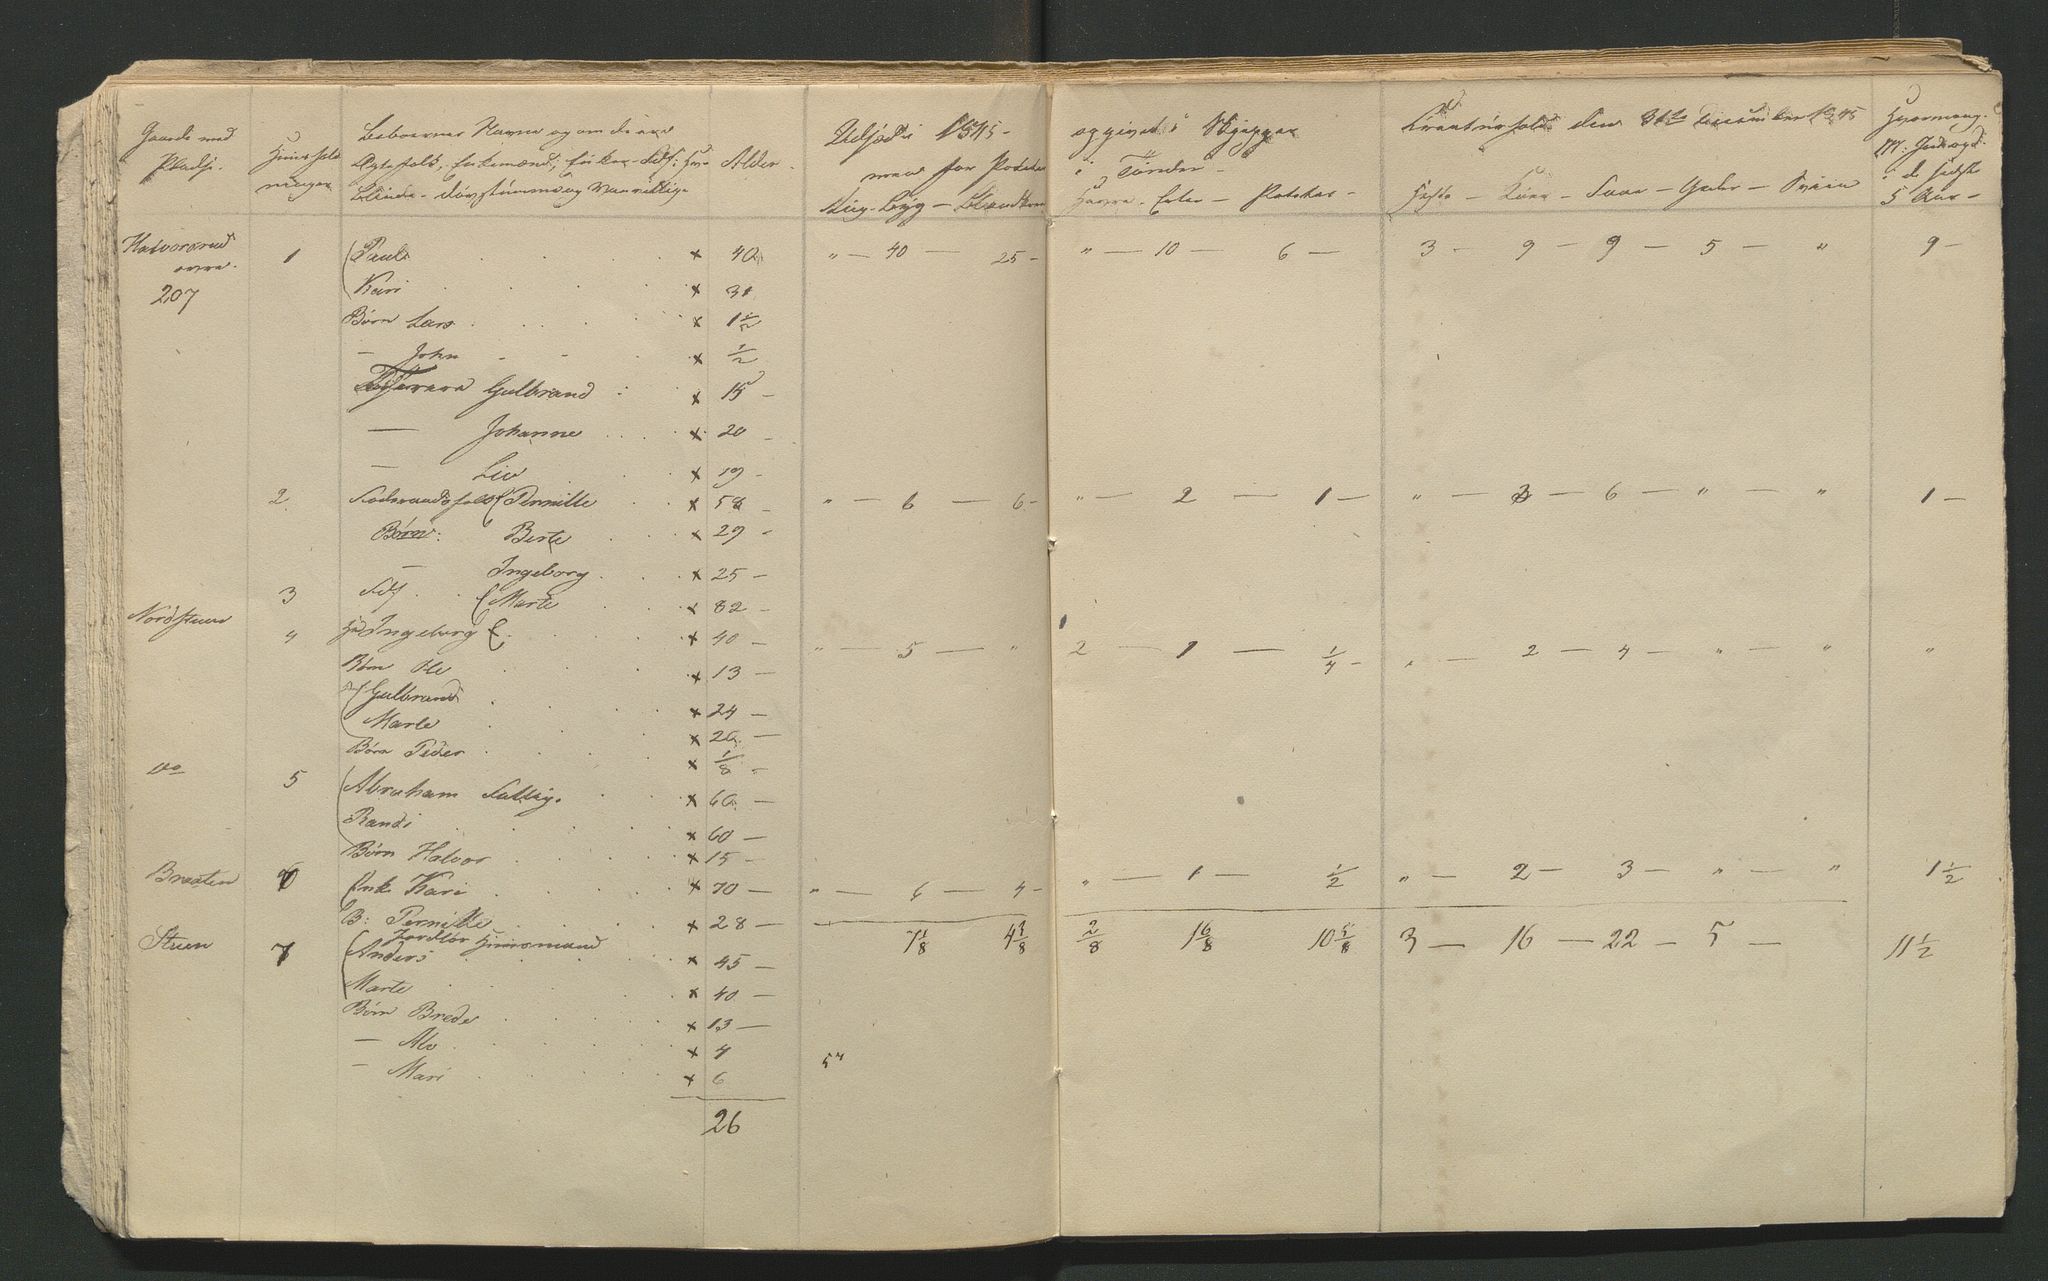 Gaarde med Pladse.
Huusholdninger
Beboernes Navne og om de ere
Ægtefolk, Enkemænd, Enker
Blinde - døvstumme og vanvittige
Alder.
Udsæd i 1845 - opgivet i Skjepper
men for Poteter i Tønder -
Rug - Byg - Blandkorn
Havre - Erter - Poteter -
Kreaturhold den 31te December 1845
Heste - Kiøer - Faar - Geder - Sviin
Hvormang.
i de sidste
5 Aar -
Halvorsrud 1 Paul x 40 " - 40 - 25 - " - 10 - 6 - 3 - 9 - 9 - 5 - " 9 -
øvre.
207 Kari x 31
Børn Lars x 1 1/2
- John - - x 1/2
Gulbrand : x 15 -
- Johanne x 20 -
- Liv x 19 -
2. Føderaadsfolk Pernille x 58 - " - 6 - 6 - " - 2 - 1 - " - 3 - 6 - " - " 1 -
Børn: Berte x 29 -
- Ingeborg x 25 -
3 Marte x 82 -
Nordstuen 4 Ingeborg x 40 - " - 5 - " 2 - 1 - 1/4 - " - 2 - 4 - " - " "
Børn Ole x 13 -
Gulbrand x 24 -
Marte x 20 -
Børn Peder x 1/8 -
do 5 Abraham Fattig. x 60 -
Randi x 60 -
Børn Halvor x 15 -
Braaten 6 Enke Kari x 70 - " - 6 - 4 - " - 1 - 1/2 " - 2 - 3 - " - " 1 1/2
B: Pernille x 28 -
Jordløs Huusmand
Stuen 7 Anders x 45 - 7 1/8 4 3/8 2/8 1 6/8 10 5/8 3 - 16 - 22 - 5 - 11 1/2
Marte x 40 -
Børn Brede x 13 -
- Alv x 4
- Mari x 6
57
26